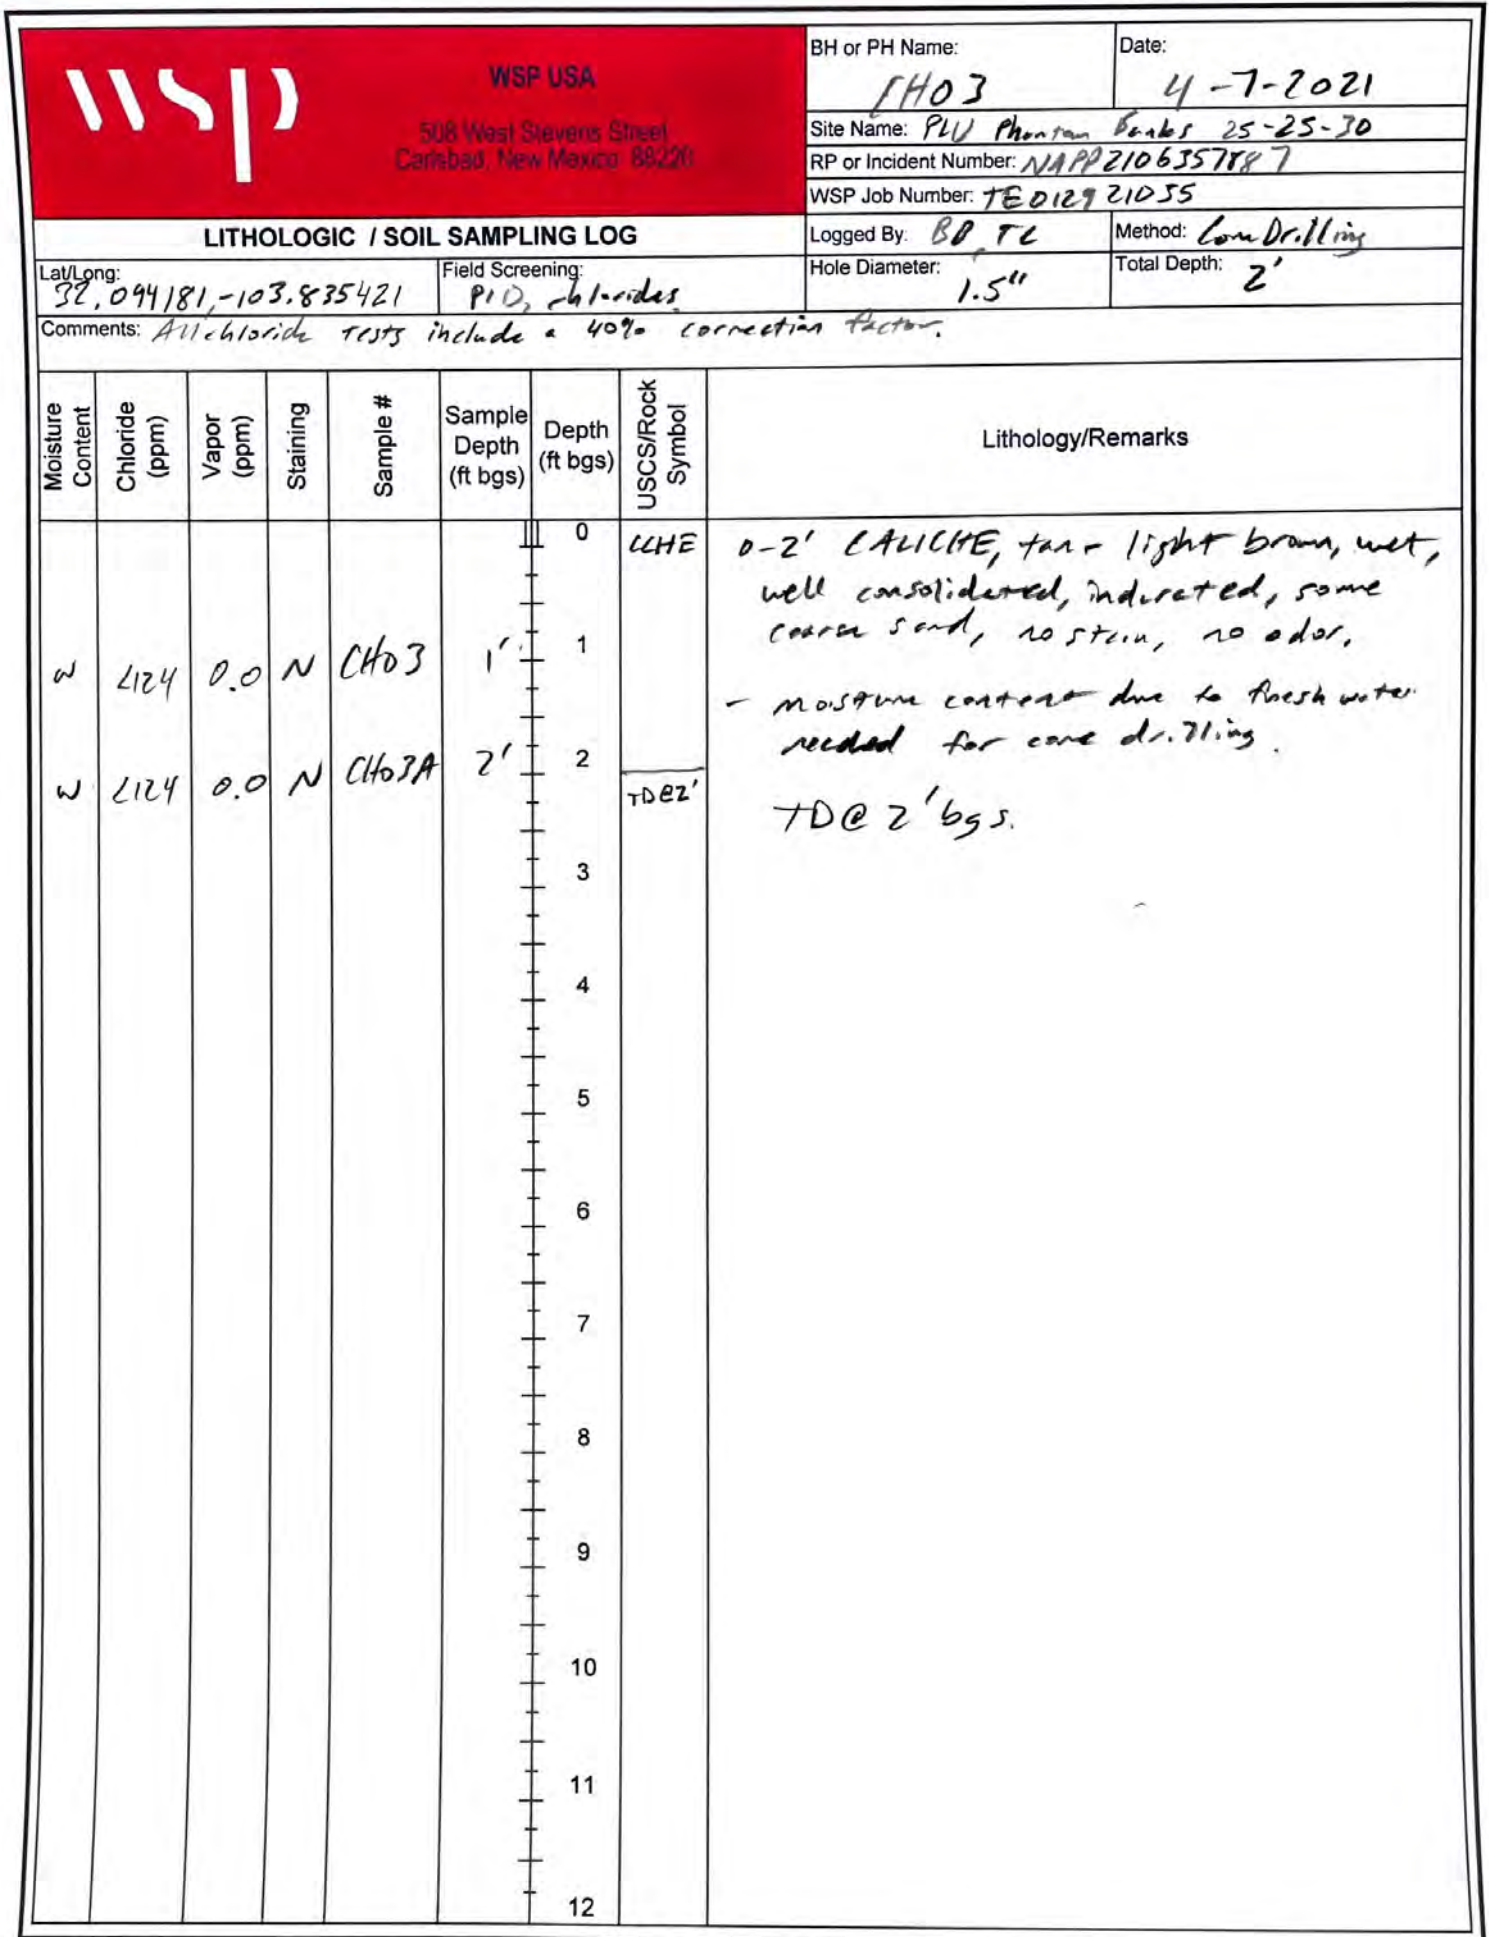 wsp
WSP USA
508 West Stevens Street
Carlsbad, New Mexico 88220
BH or PH Name:
CH03
Date:
4-7-2021
Site Name: PLU Phantom Banks 25-25-30
RP or Incident Number: NAPP2106357887
WSP Job Number: TE012921035
LITHOLOGIC / SOIL SAMPLING LOG
Logged By: BB, TC
Method: Core Drilling
Lat/Long:
32.094181,-103.835421
Field Screening:
PID, chlorides
Hole Diameter:
1.5"
Total Depth:
2'
Comments: All chloride tests include a 40% correction factor.
Moisture Content
Chloride (ppm)
Vapor (ppm)
Staining
Sample #
Sample Depth (ft bgs)
Depth (ft bgs)
USCS/Rock Symbol
Lithology/Remarks
0 CCHE 0-2' CALICHE, tan - light brown, wet,
well consolidated, indurated, some
coarse sand, no stain, no odor.
W <124 0.0 N CH03 1' 1
- moisture content due to fresh water
needed for core drilling.
W <124 0.0 N CH03A 2' 2
TD@2' TD@ 2' bgs.
3
4
5
6
7
8
9
10
11
12